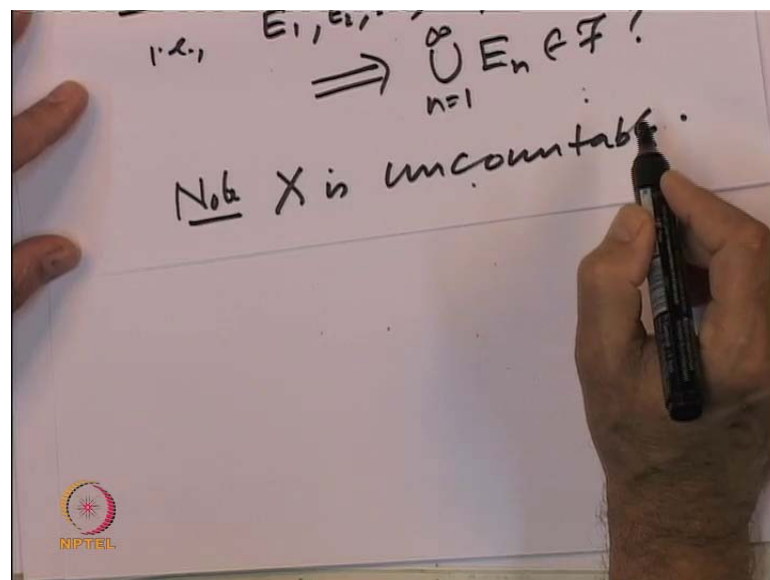 i.e., E1, E2, .
⟹ ∞⋃n=1 En ∈ F ?
Note X is uncountable.
NPTEL